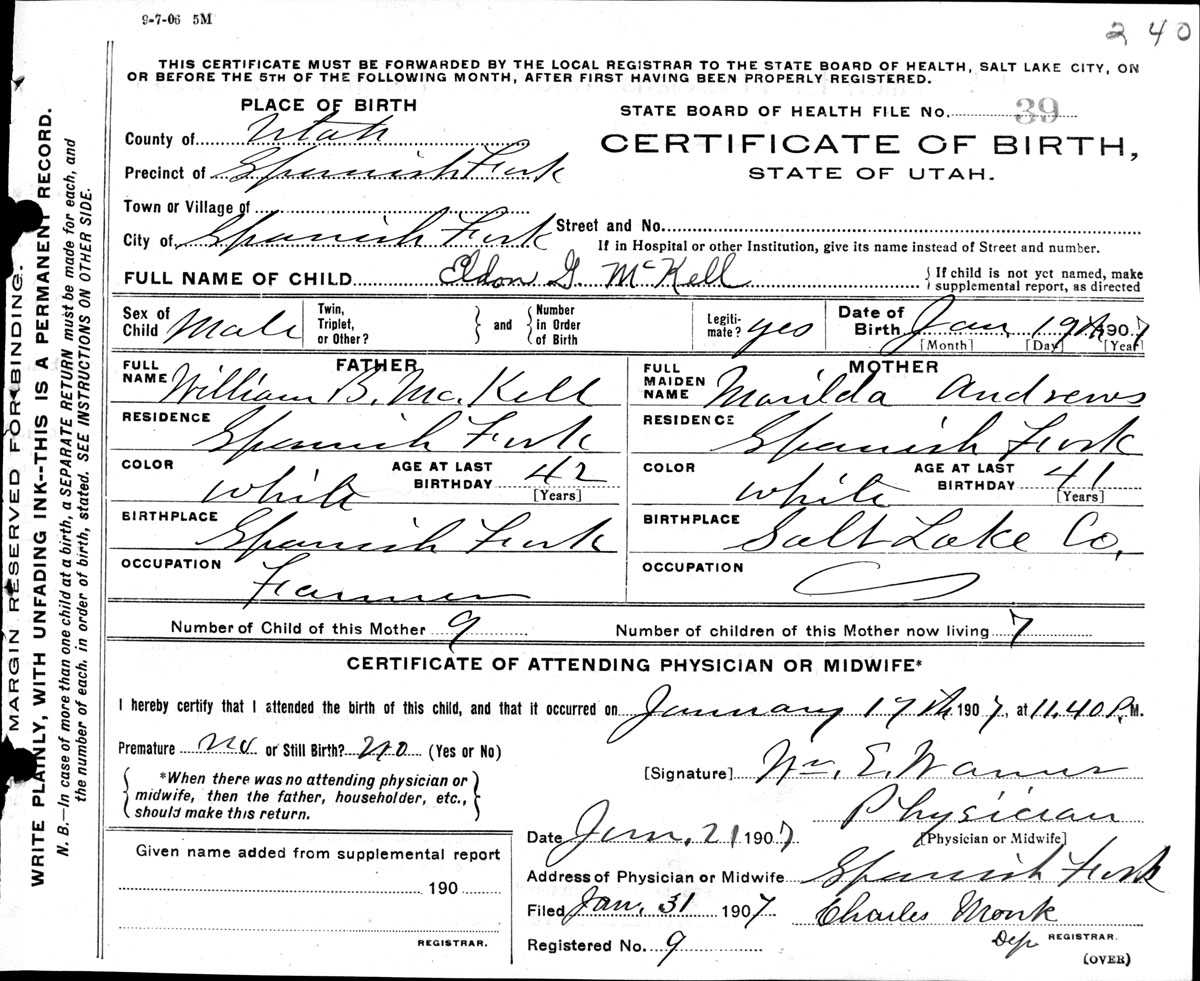 9-7-06 5M
240
THIS CERTIFICATE MUST BE FORWARDED BY THE LOCAL REGISTRAR TO THE STATE BOARD OF HEALTH, SALT LAKE CITY, ON
OR BEFORE THE 5TH OF THE FOLLOWING MONTH, AFTER FIRST HAVING BEEN PROPERLY REGISTERED.
PLACE OF BIRTH
STATE BOARD OF HEALTH FILE No. 39
County of Utah
CERTIFICATE OF BIRTH,
Precinct of Spanish Fork
STATE OF UTAH.
Town or Village of
Street and No.
City of Spanish Fork
If in Hospital or other Institution, give its name instead of Street and number.
FULL NAME OF CHILD Eldon G. McKell
{ If child is not yet named, make
supplemental report, as directed
Sex of Child Male
Twin, Triplet, or Other? } and { Number in Order of Birth
Legiti-mate? yes
Date of Birth Jan 19th 1907
[Month] [Day] [Year]
FATHER
FULL NAME William B. McKell
RESIDENCE Spanish Fork
COLOR White
AGE AT LAST BIRTHDAY 42
[Years]
BIRTHPLACE Spanish Fork
OCCUPATION Farmer
MOTHER
FULL MAIDEN NAME Marilda Andrews
RESIDENCE Spanish Fork
COLOR White
AGE AT LAST BIRTHDAY 41
[Years]
BIRTHPLACE Salt Lake Co.
OCCUPATION
Number of Child of this Mother 9
Number of children of this Mother now living 7
CERTIFICATE OF ATTENDING PHYSICIAN OR MIDWIFE*
I hereby certify that I attended the birth of this child, and that it occurred on January 19th 1907, at 11.40 P.M.
Premature No or Still Birth? No (Yes or No)
{ *When there was no attending physician or
midwife, then the father, householder, etc.,
should make this return. }
[Signature] Wm. E. Warner
Physician
[Physician or Midwife]
Date Jan. 21 1907
Address of Physician or Midwife Spanish Fork
Filed Jan. 31 1907
Charles Monk
Dep REGISTRAR.
Registered No. 9
(OVER)
Given name added from supplemental report
190
REGISTRAR.
MARGIN RESERVED FOR BINDING.
WRITE PLAINLY, WITH UNFADING INK--THIS IS A PERMANENT RECORD.
N. B.—In case of more than one child at a birth, a SEPARATE RETURN must be made for each, and
the number of each, in order of birth, stated. SEE INSTRUCTIONS ON OTHER SIDE.